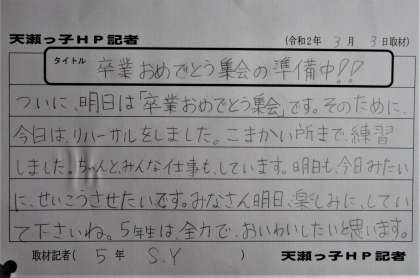 天瀬っ子HP記者
(令和2年 3月 3日取材)
タイトル
卒業おめでとう集会の準備中!!
ついに、明日は「卒業おめでとう集会」です。そのために、
今日は、リハーサルをしました。こまかい所まで、練習
しました。ちゃんと、みんな仕事も、しています。明日も、今日みたい
に、せいこうさせたいです。みなさん明日、楽しみに、してい
て下さいね。5年生は、全力で、おいわいしたいと思います。
取材記者( 5年 S.Y )
天瀬っ子HP記者